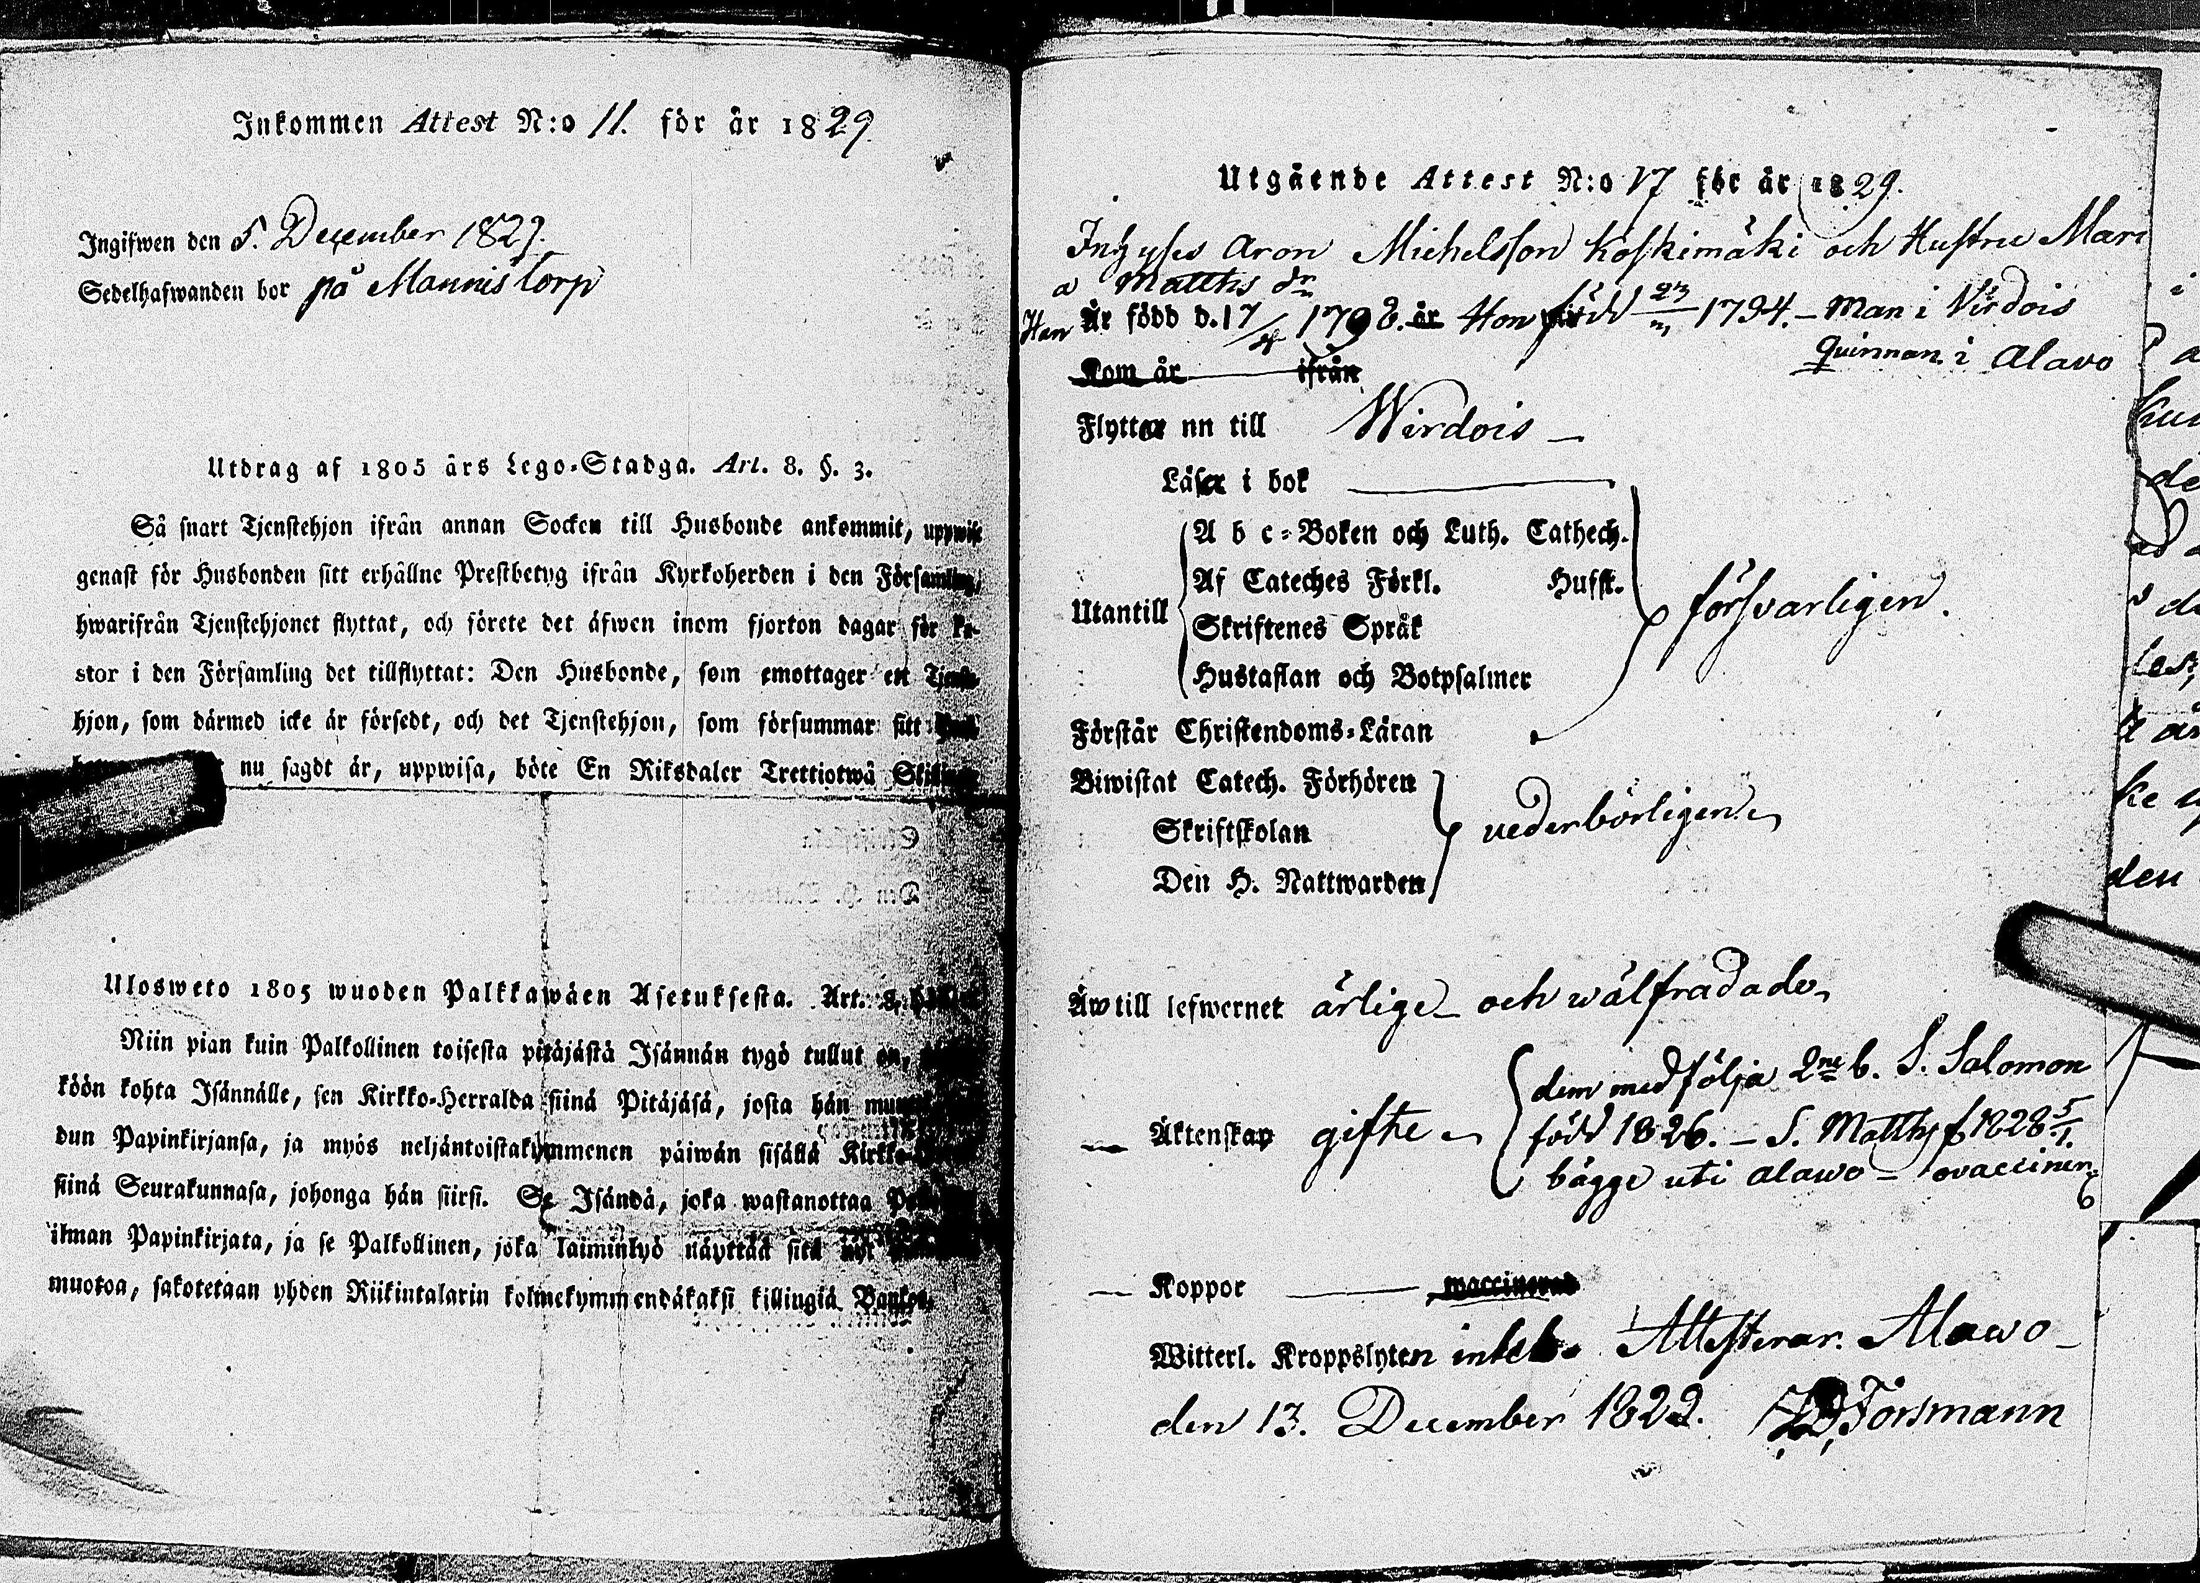 Inkommen Attest N:o 11. för år 1829.
Ingifwen den 5. December 1829.
Sedelhafwanden bor på Mannis torp
Utdrag af 1805 års Lego-Stadga. Art. 8. §. 3.
Så snart Tjenstehjon ifrån annan Socken till Husbonde ankommit, uppwise
genast för Husbonden sitt erhållne Prestbetyg ifrån Kyrkoherden i den Församling,
hwarifrån Tjenstehjonet flyttat, och förete det äfwen inom fjorton dagar för Pa-
stor i den Församling det tillflyttat: Den Husbonde, som emottager ett Tjenste-
hjon, som därmed icke är försedt, och det Tjenstehjon, som försummar sitt
nu sagdt är, uppwisa, böte En Riksdaler Trettiotwå Skillingar
Ulosweto 1805 wuoden Palkkawäen Asetuksesta. Art. 8.
Niin pian kuin Palkollinen toisesta pitäjästä Isännän tygö tullut on,
köön kohta Isännälle, sen Kirkko-Herralda siinä Pitäjäsä, josta hän
dun Papinkirjansa, ja myös neljäntoistakymmenen päiwän sisällä
siinä Seurakunnasa, johonga hän siirsi. Se Isändä, joka wastanottaa
ilman Papinkirjata, ja se Palkollinen, joka laiminlyö näyttää sitä nyt
muotoa, sakotetaan yhden Riikintalarin kolmekymmendäkaksi killingiä Bankos.
Utgående Attest N:o 17 för år 1829.
Inhyses Aron Michelsson Koskimäki och Hustru Mari
a Matths dr
Han Är född d. 17/4 1798. är Hon född 1794. – Man i Virdois
Quinnan i Alavo
Kom år ifrån
Flyttar nu till Wirdois –
Läser i bok
A b c-Boken och Luth. Cathech.
Af Cateches Förkl. Hufst.
Utantill försvarligen.
Skriftenes Språk
Hustaflan och Botpsalmer
Förstår Christendoms-Läran
Biwistat Catech. Förhören
Skriftskolan vederbörligen
Den H. Nattwarden
Äro till lefwernet ärlige och wälfrädade
dem medfölja 2ne b. S. Salomon
Äktenskap gifte född 1826. – S. Matths f. 1828 5/1.
bägge uti Alawo – ovaccinera
Koppor waccinerad
Witterl. Kroppslyten Attesterar. Alawo –
den 13. December 1829. Forsmann